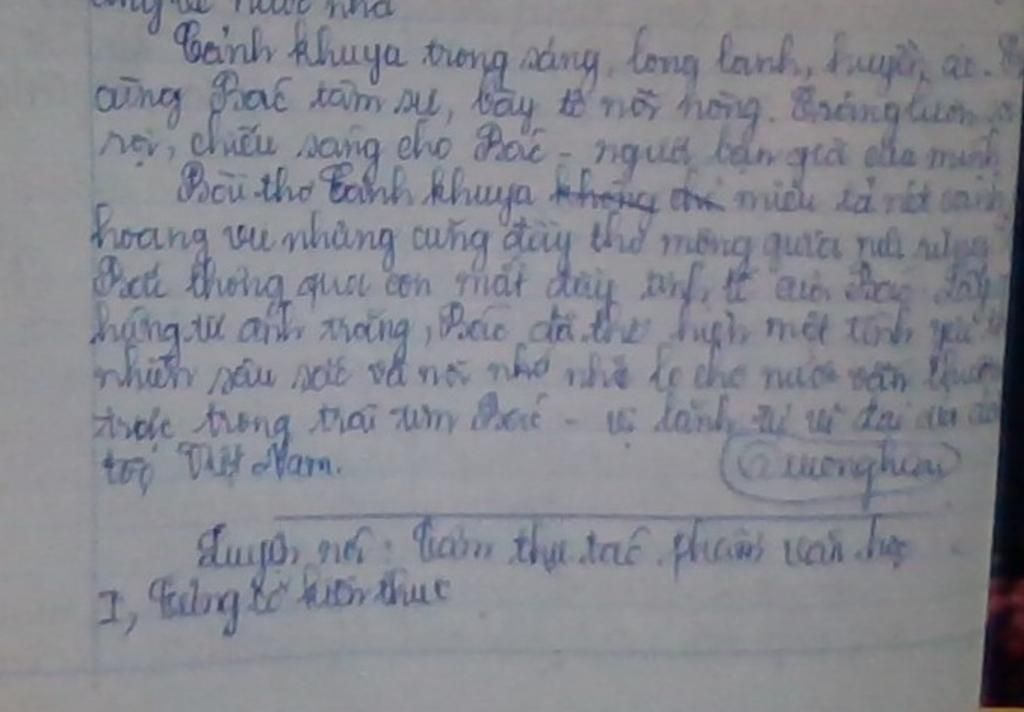 nước nhà
Cảnh khuya trong sáng, long lanh, huyền ảo.
cùng Bác tâm sự, bày tỏ nỗi lòng. Trăng luôn
rọi, chiếu sáng cho Bác - người bạn già của mình
Bài thơ Cảnh khuya không chỉ miêu tả nét cảnh
hoang vu nhưng cũng đầy thơ mộng giữa núi rừng
Bắc thông qua con mắt đầy tinh tế của Bác. Lấy
hứng từ ánh trăng, Bác đã thể hiện một tình yêu
nhiên sâu sắc và nỗi nhớ nhà lo cho nước vẫn
trực trong trái tim Bác - vị lãnh tụ vĩ đại
tộc Việt Nam.
Luyện nói: Cảm thụ tác phẩm văn học
I, Củng cố kiến thức